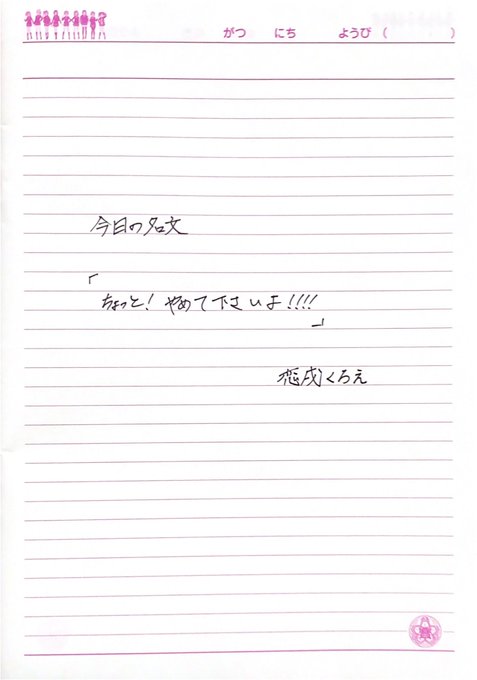 がつ にち ようび ( )
今日の名文
「
ちょっと! やめて下さいよ!!!!
」
恋戌くろえ